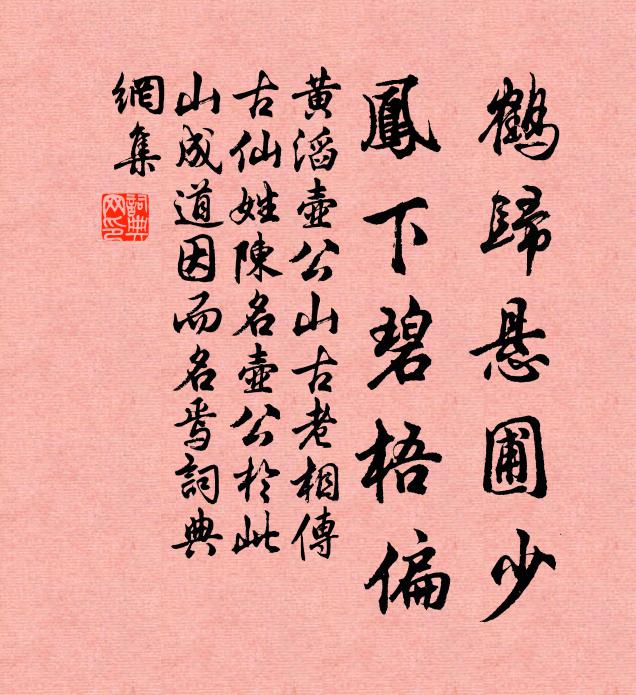 鶴歸悬圃少
鳳下碧梧偏
黄滔壺公山古老相傳
古仙姓陳名壺公於此
山成道因而名焉詞典
網集
詞典
网印